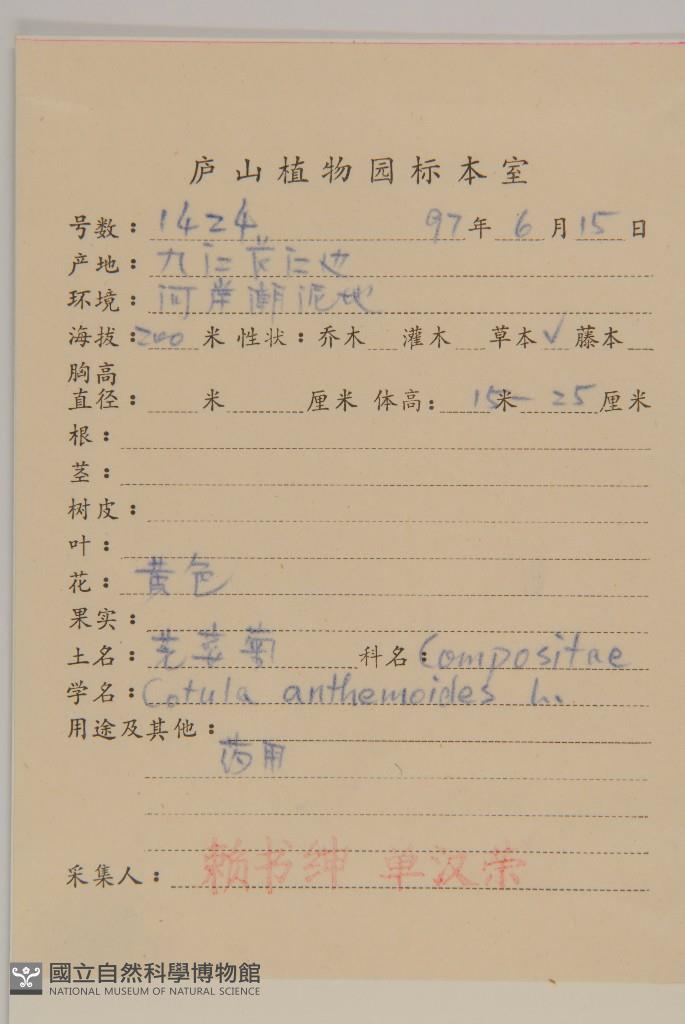 庐山植物园标本室
号数：1424 97年6月15日
产地：九江
环境：河岸潮泥地
海拔：200米 性状：乔木 灌木 草本√ 藤本
胸高
直径： 米 厘米 体高：15米—25厘米
根：
茎：
树皮：
叶：
花：黄色
果实：
土名：芫荽菊 科名：Compositae
学名：Cotula anthemoides L.
用途及其他：
药用
采集人：赖书绅 单汉荣
國立自然科學博物館
NATIONAL MUSEUM OF NATURAL SCIENCE